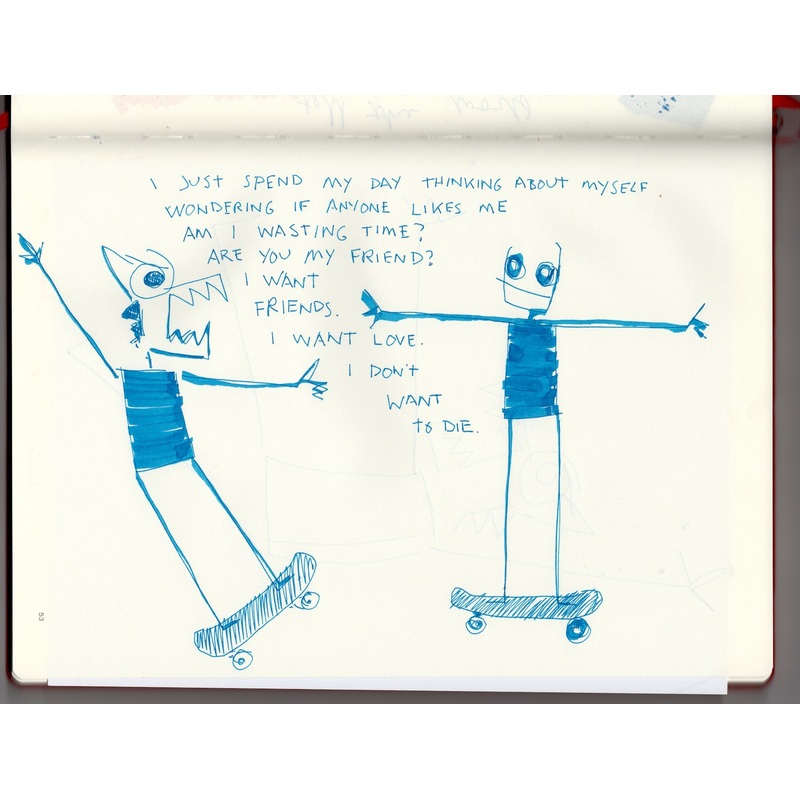 I JUST SPEND MY DAY THINKING ABOUT MYSELF.
WONDERING IF ANYONE LIKES ME
AM I WASTING TIME?
ARE YOU MY FRIEND?
I WANT
FRIENDS.
I WANT LOVE.
I DON'T
WANT
to DIE.
53